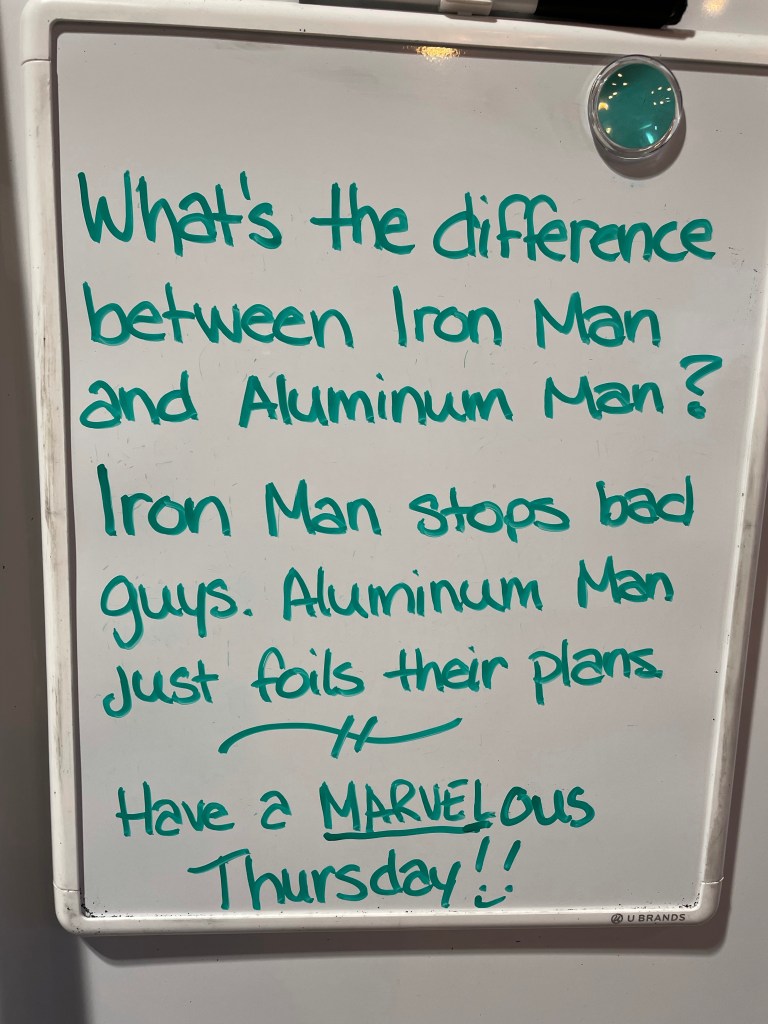 What's the difference
between Iron Man
and Aluminum Man?
Iron Man stops bad
guys. Aluminum Man
just foils their plans.
Have a MARVELous
Thursday!!
U BRANDS